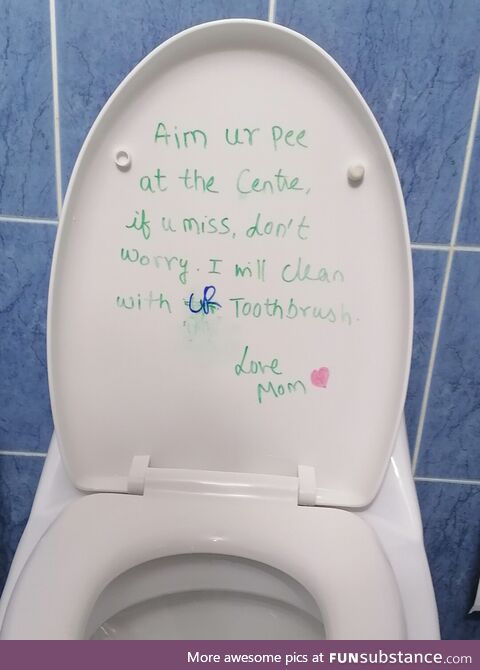 Aim ur pee
at the Centre,
if u miss, don't
worry. I will clean
with UR Toothbrush.
Love
Mom
More awesome pics at FUNsubstance.com